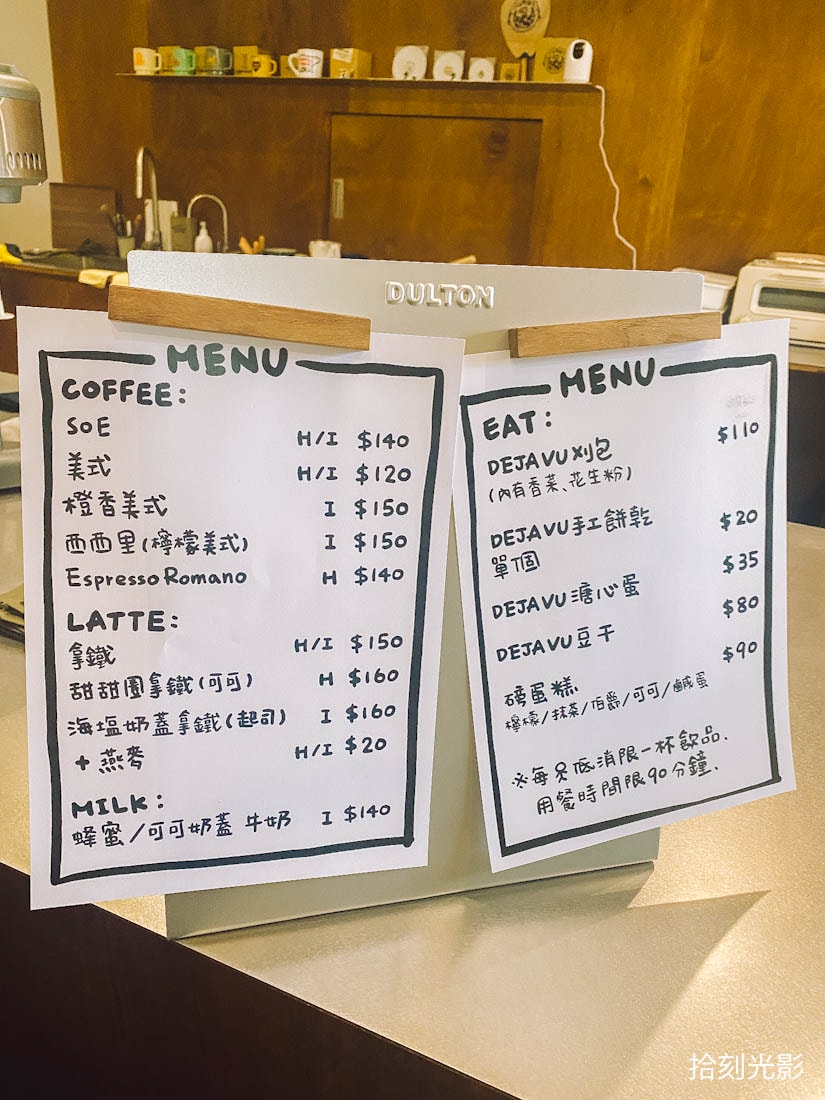 DULTON
MENU
COFFEE:
SOE H/I $140
美式 H/I $120
橙香美式 I $150
西西里(檸檬美式) I $150
Espresso Romano H $140
LATTE:
拿鐵 H/I $150
甜甜圈拿鐵(可可) H $160
海塩奶蓋拿鐵(起司) I $160
+燕麥 H/I $20
MILK:
蜂蜜/可可奶蓋 牛奶 I $140
MENU
EAT:
DEJAVU刈包 $110
(內有香菜、花生粉)
DEJAVU手工餅乾 $20
單個
DEJAVU溏心蛋 $35
DEJAVU豆干 $80
磅蛋糕 $90
檸檬/抹茶/伯爵/可可/鹹蛋
※每人低消限一杯飲品、
用餐時間限90分鐘、
拾刻光影